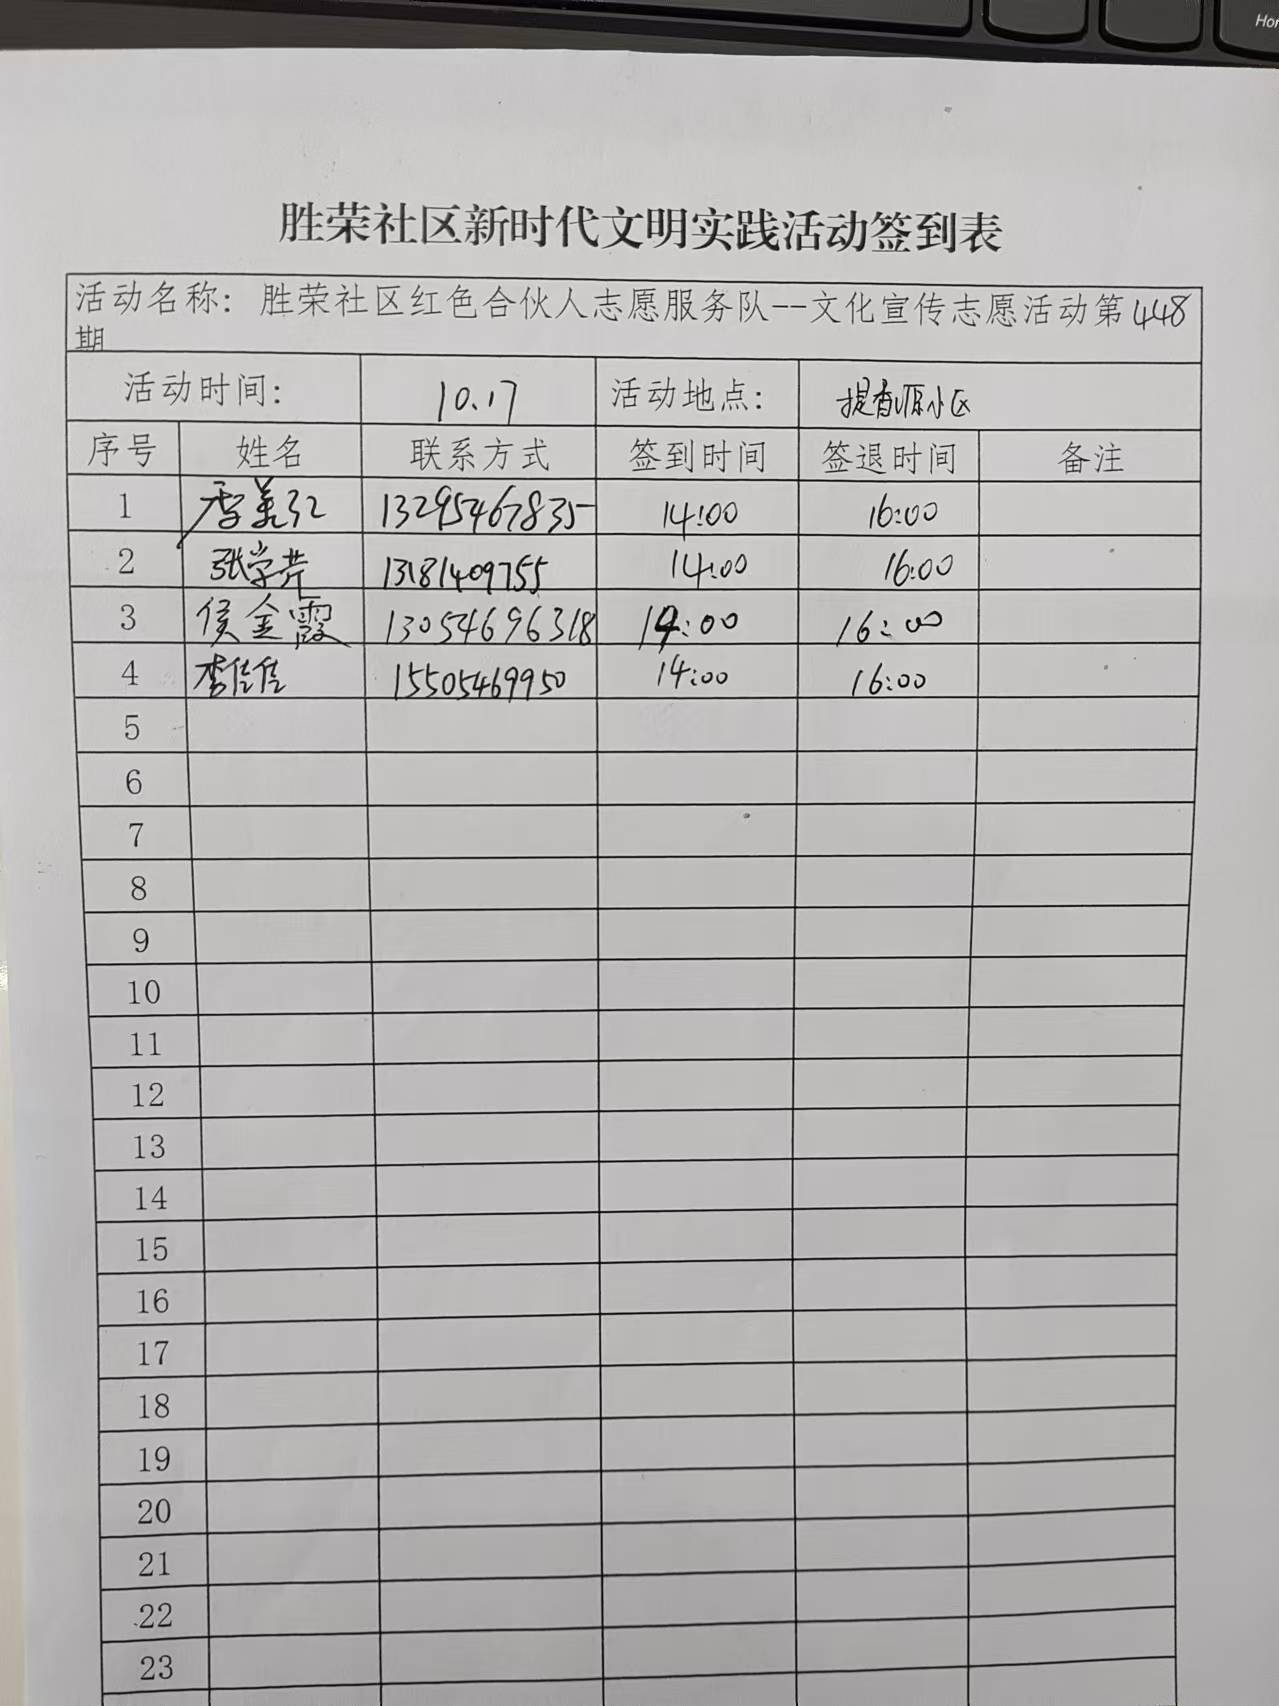 Hom
胜荣社区新时代文明实践活动签到表
活动名称：胜荣社区红色合伙人志愿服务队--文化宣传志愿活动第448
期
活动时间： 10.17 活动地点： 提香源小区
序号 姓名 联系方式 签到时间 签退时间 备注
1 李美红 13295467835 14:00 16:00
2 张学芹 13181409755 14:00 16:00
3 侯金霞 13054696318 14:00 16:00
4 李佳佳 15505469950 14:00 16:00
5
6
7
8
9
10
11
12
13
14
15
16
17
18
19
20
21
22
23